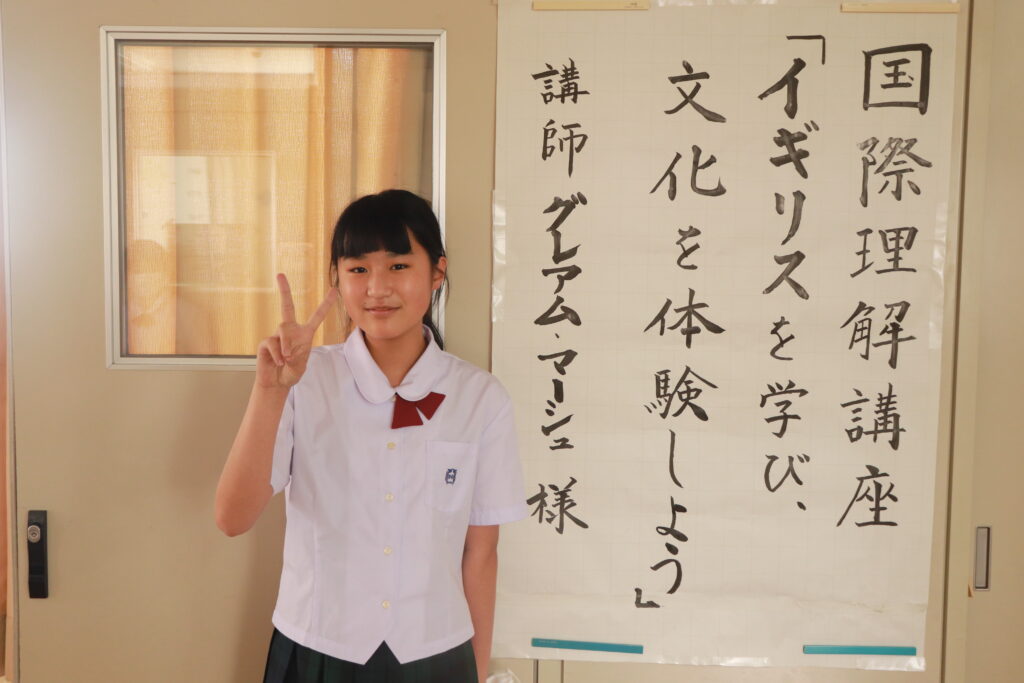 国際理解講座
「イギリスを学び、
文化を体験しよう」
講師 グレアム・マーシュ 様